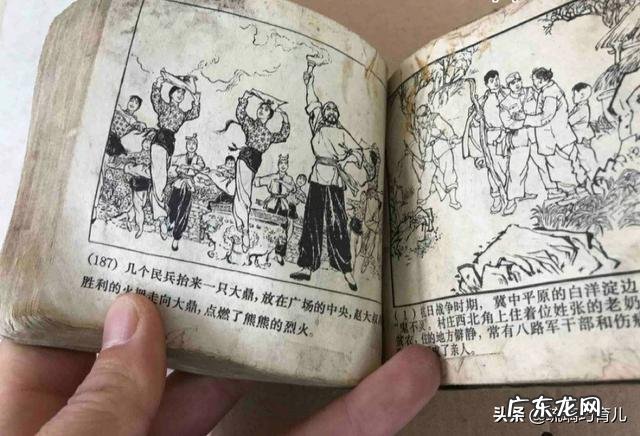 (187) 几个民兵抬来一只大鼎，放在广场的中央，赵大叔
胜利的火把走向大鼎，点燃了熊熊的烈火。
(1) 抗日战争时期，冀中平原的白洋淀边
"鬼不灵"村庄西北角上住着位姓张的老
的地方僻静，常有八路军干部和伤
了亲人。
头条
广东龙网